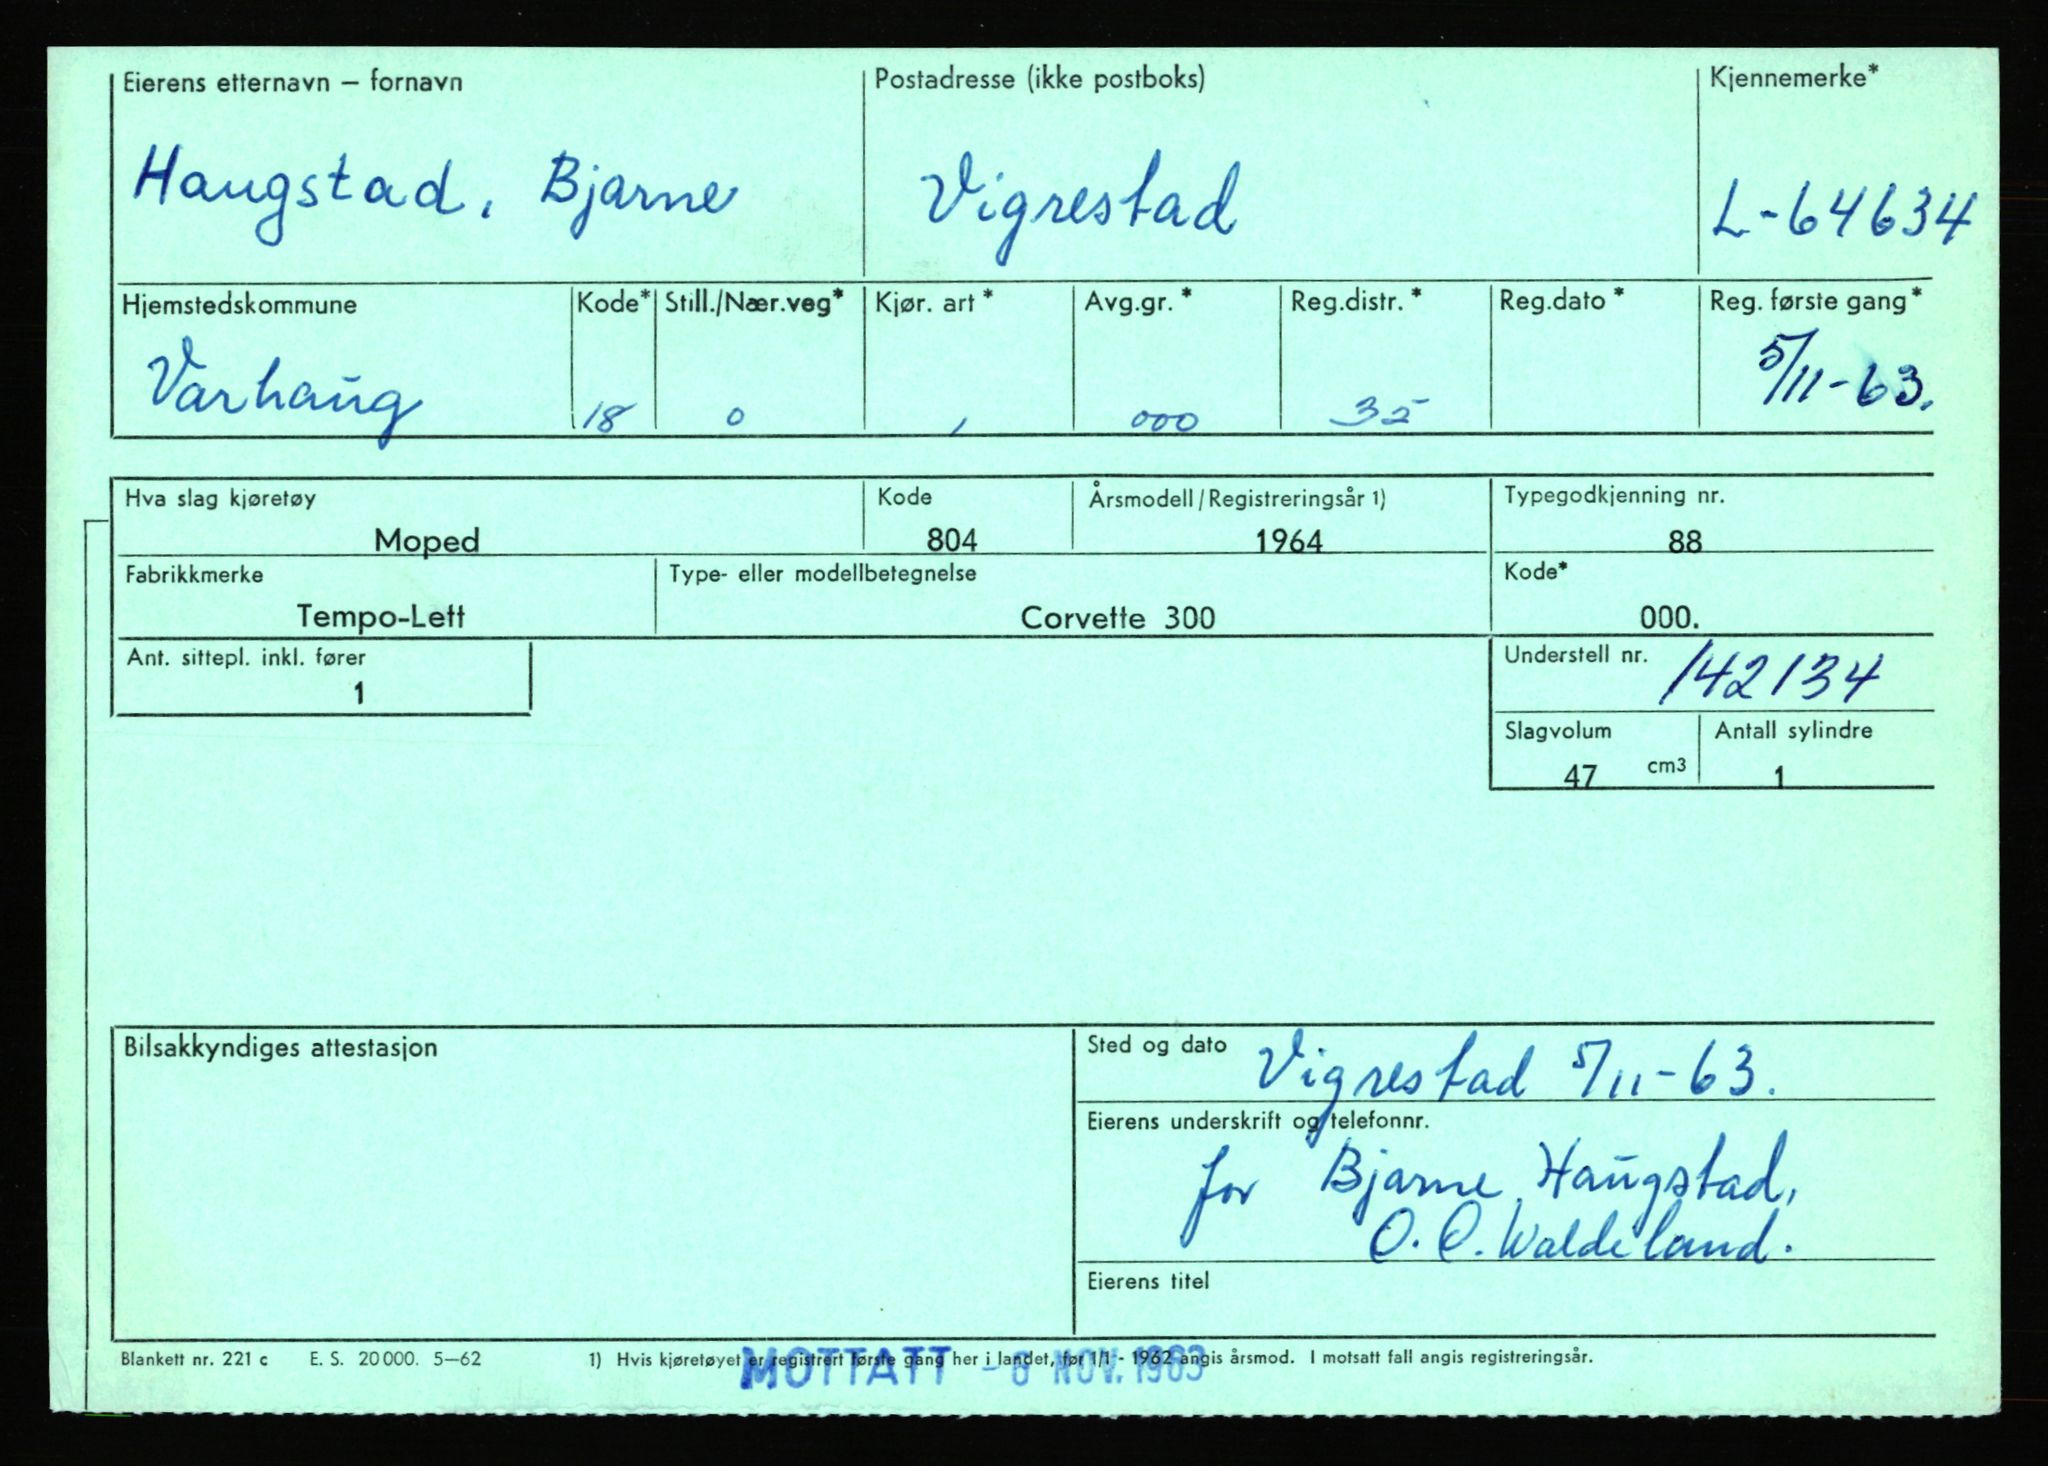 Eierens etternavn – fornavn Postadresse (ikke postboks) Kjennemerke*
Haugstad, Bjarne Vigrestad L-64634
Hjemstedskommune Kode* Still./Nær.veg* Kjør. art * Avg.gr. * Reg.distr. * Reg.dato * Reg. første gang*
Varhaug 18 0 1 000 35 5/11-63.
Hva slag kjøretøy Kode Årsmodell/Registreringsår 1) Typegodkjenning nr.
Moped 804 1964 88
Fabrikkmerke Type- eller modellbetegnelse Kode*
Tempo-Lett Corvette 300 000.
Ant. sittepl. inkl. fører Understell nr. 142134
1
Slagvolum Antall sylindre
47 cm3 1
Bilsakkyndiges attestasjon Sted og dato Vigrestad 5/11-63.
Eierens underskrift og telefonnr.
for Bjarne Haugstad,
O. O. Waldeland.
Eierens titel
Blankett nr. 221 c E. S. 20 000. 5–62 1) Hvis kjøretøyet er registrert første gang her i landet, før 1/1 - 1962 angis årsmod. I motsatt fall angis registreringsår.
MOTTATT - 6 NOV. 1963